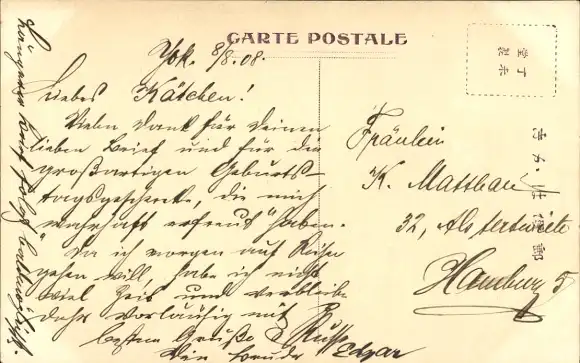 CARTE POSTALE
Yok. 8/8.08.
Liebes Kätchen!
Vielen Dank für Deinen
lieben Brief und für die
großartigen Geburts-
tagsgeschenke, die mich
wahrhaft erfreut haben.
Da ich morgen auf Reisen
gehen will, habe ich nicht
viel Zeit und verbleibe
daher vorläufig mit
besten Grüße & Kuss
Dein Edgar
Längerer Brief folgt
Fräulein
K. Matthaei
32, Alsterwiete
Hamburg 5